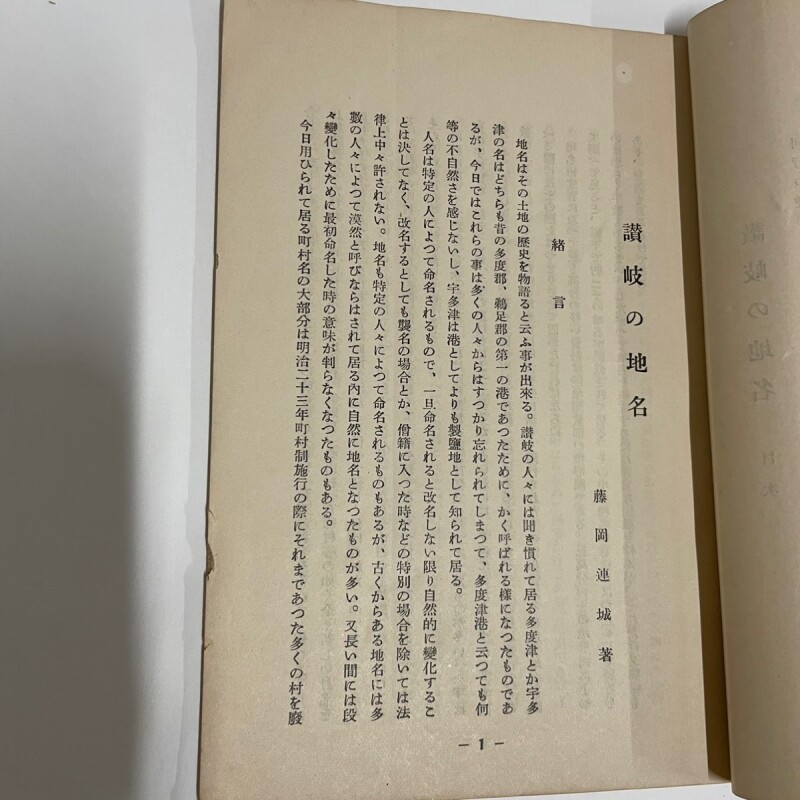 讃岐の地名
藤岡連城著
緒言
地名はその土地の歴史を物語ると云ふ事が出來る。讃岐の人々には聞き慣れて居る多度津とか宇多
津の名はどちらも昔の多度郡、鵜足郡の第一の港であつたために、かく呼ばれる樣になつたものであ
るが、今日ではこれらの事は多くの人々からはすつかり忘れられてしまつて、多度津港と云つても何
等の不自然さを感じないし、宇多津は港としてよりも製鹽地として知られて居る。
人名は特定の人によつて命名されるもので、一旦命名されると改名しない限り自然的に變化するこ
とは決してなく、改名するとしても襲名の場合とか、僧籍に入つた時などの特別の場合を除いては法
律上中々許されない。地名も特定の人々によつて命名されるものもあるが、古くからある地名には多
數の人々によつて漠然と呼びならはされて居る內に自然に地名となつたものが多い。又長い間には段
々變化したために最初命名した時の意味が判らなくなつたものもある。
今日用ひられて居る町村名の大部分は明治二十三年町村制施行の際にそれまであつた多くの村を廢
— 1 —